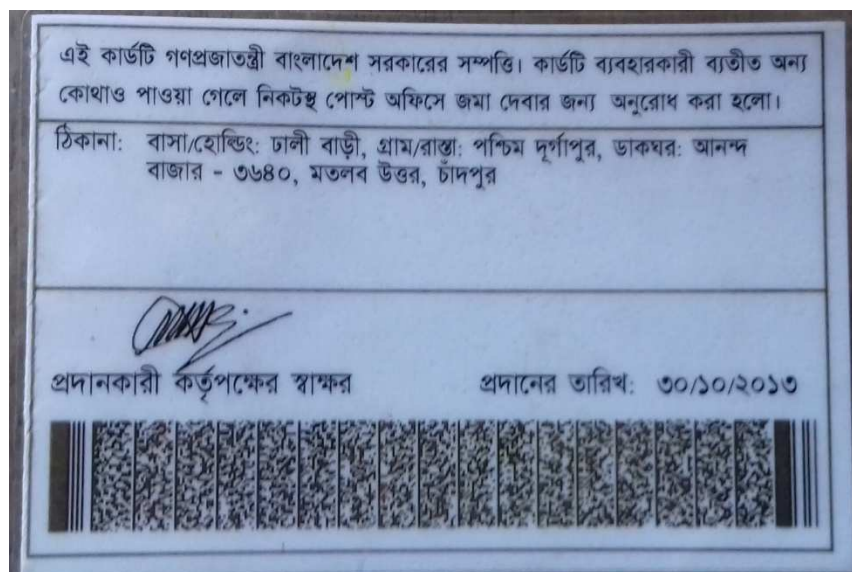 এই কার্ডটি গণপ্রজাতন্ত্রী বাংলাদেশ সরকারের সম্পত্তি। কার্ডটি ব্যবহারকারী ব্যতীত অন্য
কোথাও পাওয়া গেলে নিকটস্থ পোস্ট অফিসে জমা দেবার জন্য অনুরোধ করা হলো।
ঠিকানা: বাসা/হোল্ডিং: ঢালী বাড়ী, গ্রাম/রাস্তা: পশ্চিম দূর্গাপুর, ডাকঘর: আনন্দ
বাজার - ৩৬৪০, মতলব উত্তর, চাঁদপুর
প্রদানকারী কর্তৃপক্ষের স্বাক্ষর প্রদানের তারিখ: ৩০/১০/২০১৩